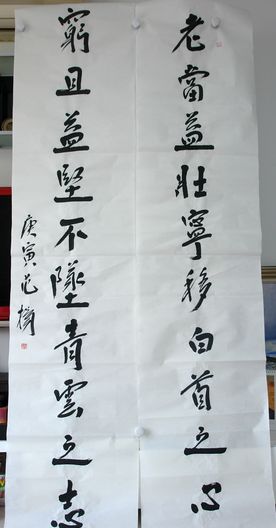 老當益壯寧移白首之心
窮且益堅不墜青雲之志
庚寅